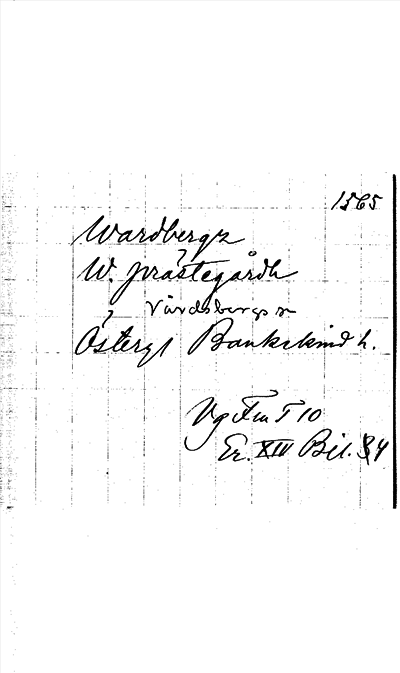 1565
Wardbergz
W. prästegårdh
Vårdsbergs sn
Östergl Bankekind h.
Vg Fm T 10
Er. XIV Bil. 84